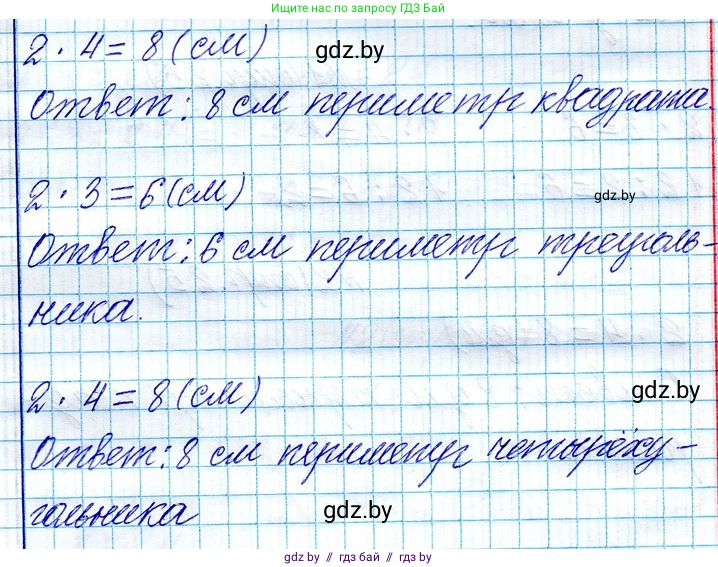 Ищите нас по запросу ГДЗ Бай
2 · 4 = 8 (см)
gdz.by
Ответ: 8 см периметр квадрата.
2 · 3 = 6 (см)
gdz.by
Ответ: 6 см периметр треуголь-
ника.
2 · 4 = 8 (см)
gdz.by
Ответ: 8 см периметр четырёху-
гольника
gdz.by
gdz.by // гдз бай // гдз by